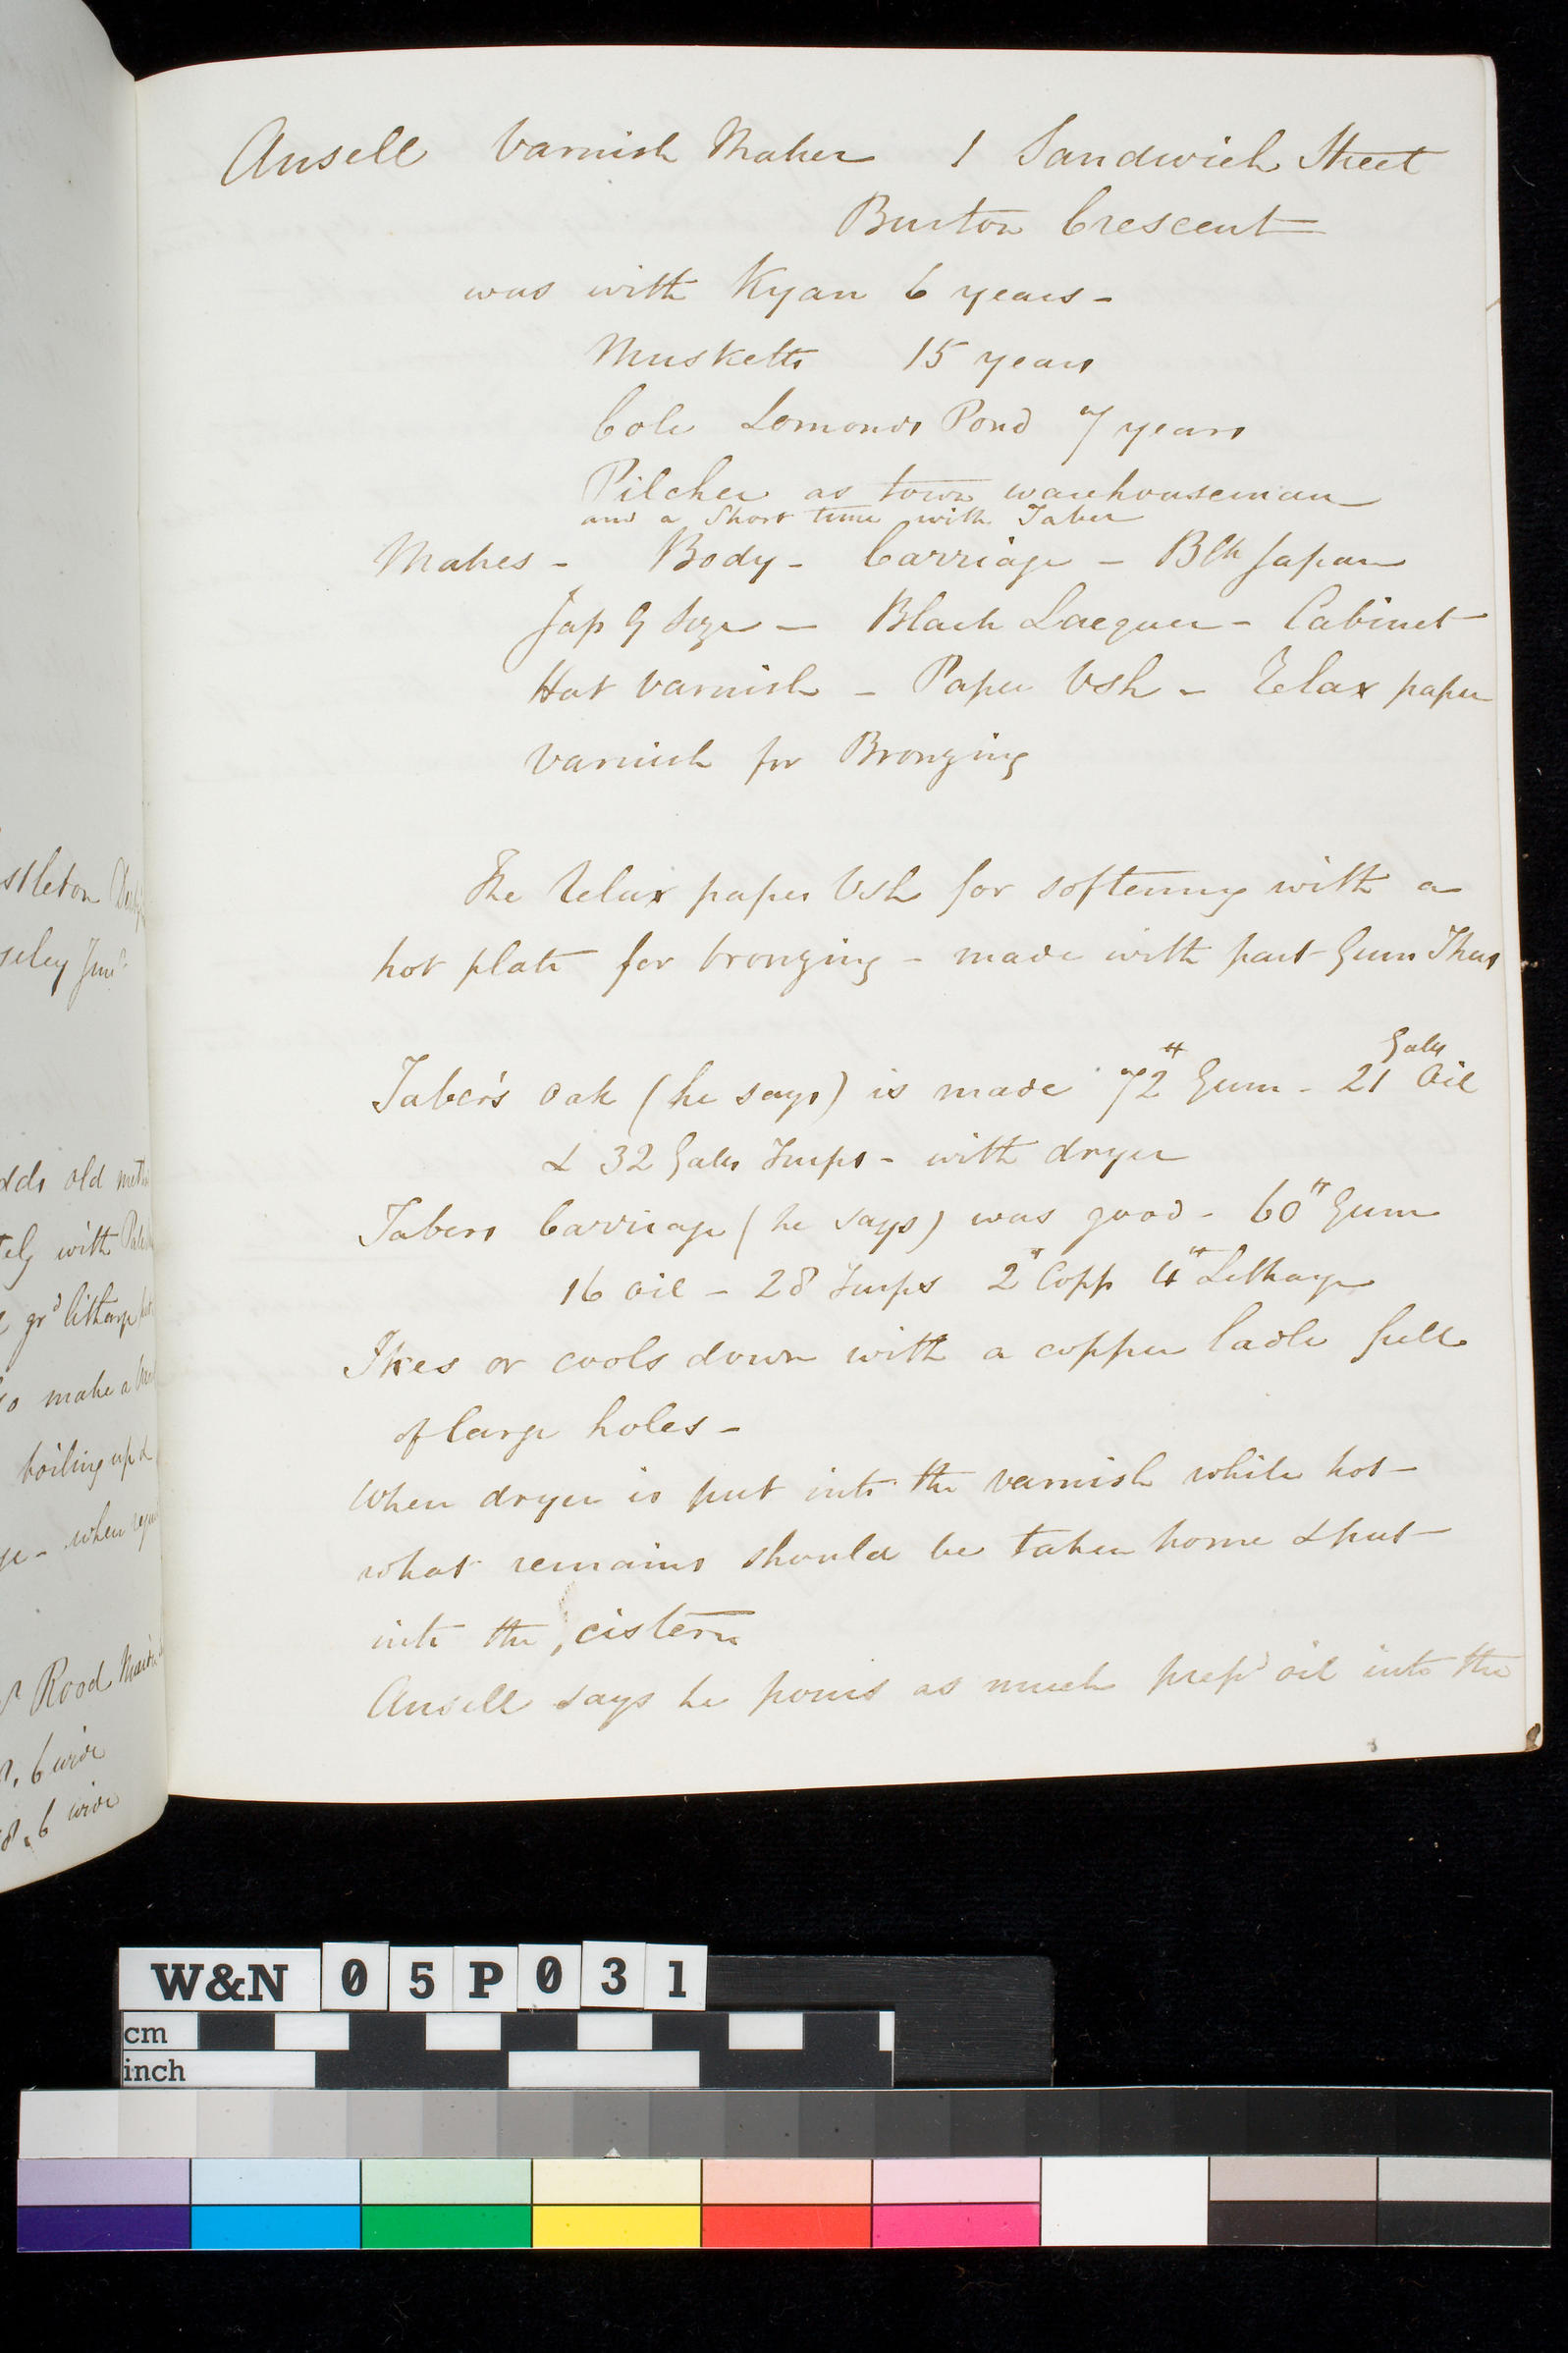 stleton
seley Junr
dds old meth
tely with
grd litharge
to make a
boiling up &
when
Rood
6 wide
8.6 wide
Ansell Varnish Maker 1 Sandwich Street
Burton Crescent
was with Kyan 6 years -
Musketts 15 years
Cole Lomonds Pond 7 years
Pilcher as town warehouseman
and a short time with Taber
Makes - Body - Carriage - Blk Japan
Jap G Size - Black Lacquer - Cabinet
Hat varnish - Paper Vsh - Relax paper
varnish for Bronzing
The relax paper Vsh for softening with a
hot plate for bronzing - made with part Gum Thus
Galls
Taber's Oak (he says) is made 72# Gum - 21 Oil
& 32 Galls Turps - with dryer
Tabers Carriage (he says) was good - 60# Gum
16 oil - 28 Turps 2# Copp 4# Litharge
Ikes or cools down with a copper ladle full
of large holes -
When dryer is put into the varnish while hot -
what remains should be taken home & put
into the cistern
Ansell says he pours as much prepd oil into the
W&N 05P031
cm
inch